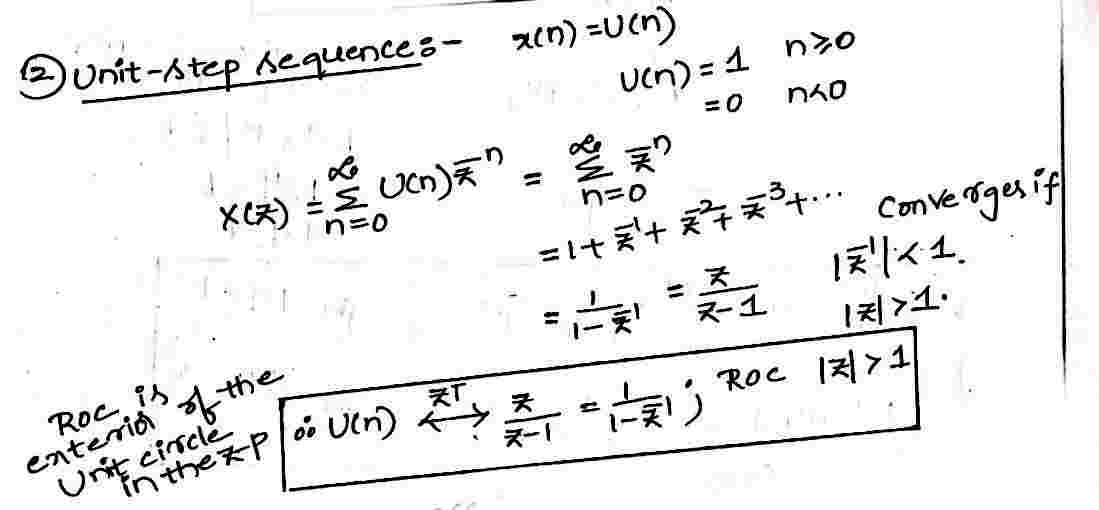 ② Unit-step sequence:- x(n) = U(n)
U(n) = 1 n≥0
= 0 n<0
X(z) = ∞Σn=0 U(n) z^-n = ∞Σn=0 z^-n
= 1 + z^-1 + z^-2 + z^-3 + ... Converges if
= 1/(1-z^-1) = z/(z-1) |z^-1| < 1.
|z| > 1.
ROC is exterior of the Unit circle in the z-p
∴ U(n) ZT↔ z/(z-1) = 1/(1-z^-1) ; ROC |z| > 1